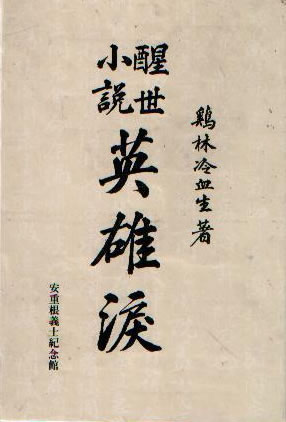 鷄林冷血生著
醒世
小說
英雄淚
安重根義士紀念館